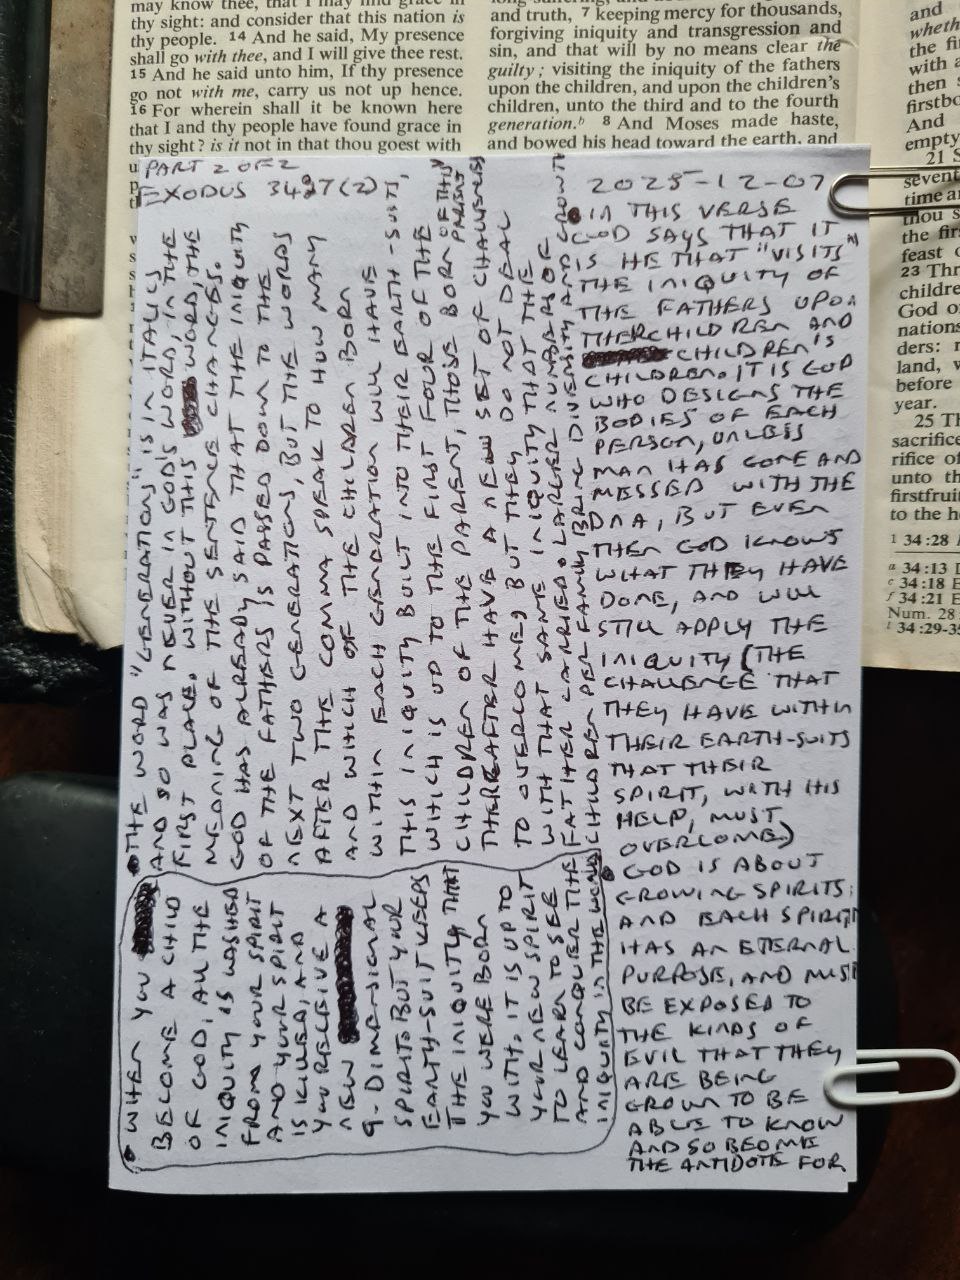 may know thee, that I may find grace in
thy sight: and consider that this nation is
thy people. 14 And he said, My presence
shall go with thee, and I will give thee rest.
15 And he said unto him, If thy presence
go not with me, carry us not up hence.
16 For wherein shall it be known here
that I and thy people have found grace in
thy sight? is it not in that thou goest with
and truth, 7 keeping mercy for thousands,
forgiving iniquity and transgression and
sin, and that will by no means clear the
guilty; visiting the iniquity of the fathers
upon the children, and upon the children's
children, unto the third and to the fourth
generation.b 8 And Moses made haste,
and bowed his head toward the earth, and
and
wheth
the fi
with a
then s
firstbo
And
empty
21 S
seven
time a
thou s
the firs
feast o
23 Thr
childre
God o
nations
ders: n
land, w
before
year.
25 Th
sacrifice
rifice of
unto th
firstfrui
to the h
1 34:28
a 34:13 D
c 34:18 E
f 34:21 E
Num. 28
t 34:29-35
PART 2 OF 2
EXODUS 34:7(2)
2025-12-07
• THE WORD "GENERATION" IS IN ITALICS
AND SO WAS NEVER IN GOD'S WORD, IN THE
FIRST PLACE. WITHOUT THIS WORD, THE
MEANING OF THE SENTENCE CHANGES.
GOD HAS ALREADY SAID THAT THE INIQUITY
OF THE FATHERS IS PASSED DOWN TO THE
NEXT TWO GENERATIONS, BUT THE WORDS
AFTER THE COMMA SPEAK TO HOW MANY
AND WHICH OF THE CHILDREN BORN
WITHIN EACH GENERATION WILL HAVE
THIS INIQUITY BUILT INTO THEIR EARTH-SUIT,
WHICH IS UP TO THE FIRST FOUR OF THE
CHILDREN OF THE PARENT, THOSE BORN OF THIS PARENT
THEREAFTER HAVE A NEW SET OF CHALLENGES
TO OVERCOME, BUT THEY DO NOT DEAL
WITH THAT SAME INIQUITY THAT THE
FATHER CARRIED. LARGER NUMBERS OF
CHILDREN PER FAMILY BRING DIVERSITY AND GROWTH
• WHEN YOU
BECOME A CHILD
OF GOD, ALL THE
INIQUITY IS WASHED
FROM YOUR SPIRIT
AND YOUR SPIRIT
IS KILLED, AND
YOU RECEIVE A
NEW
9-DIMENSIONAL
SPIRIT. BUT YOUR
EARTH-SUIT KEEPS
THE INIQUITY THAT
YOU WERE BORN
WITH. IT IS UP TO
YOUR NEW SPIRIT
TO LEARN TO SEE
AND CONQUER THE
INIQUITY IN THE WORLD
• IN THIS VERSE
GOD SAYS THAT IT
IS HE THAT "VISITS"
THE INIQUITY OF
THE FATHERS UPON
THEIR CHILDREN AND
CHILDREN'S
CHILDREN. IT IS GOD
WHO DESIGNS THE
BODIES OF EACH
PERSON, UNLESS
MAN HAS GONE AND
MESSED WITH THE
DNA, BUT EVEN
THEN GOD KNOWS
WHAT THEY HAVE
DONE, AND WILL
STILL APPLY THE
INIQUITY (THE
CHALLENGE THAT
THEY HAVE WITHIN
THEIR EARTH-SUITS
THAT THEIR
SPIRIT, WITH HIS
HELP, MUST
OVERCOME)
• GOD IS ABOUT
GROWING SPIRITS;
AND EACH SPIRIT
HAS AN ETERNAL
PURPOSE, AND MUST
BE EXPOSED TO
THE KINDS OF
EVIL THAT THEY
ARE BEING
GROWN TO BE
ABLE TO KNOW
AND SO BECOME
THE ANTIDOTE FOR